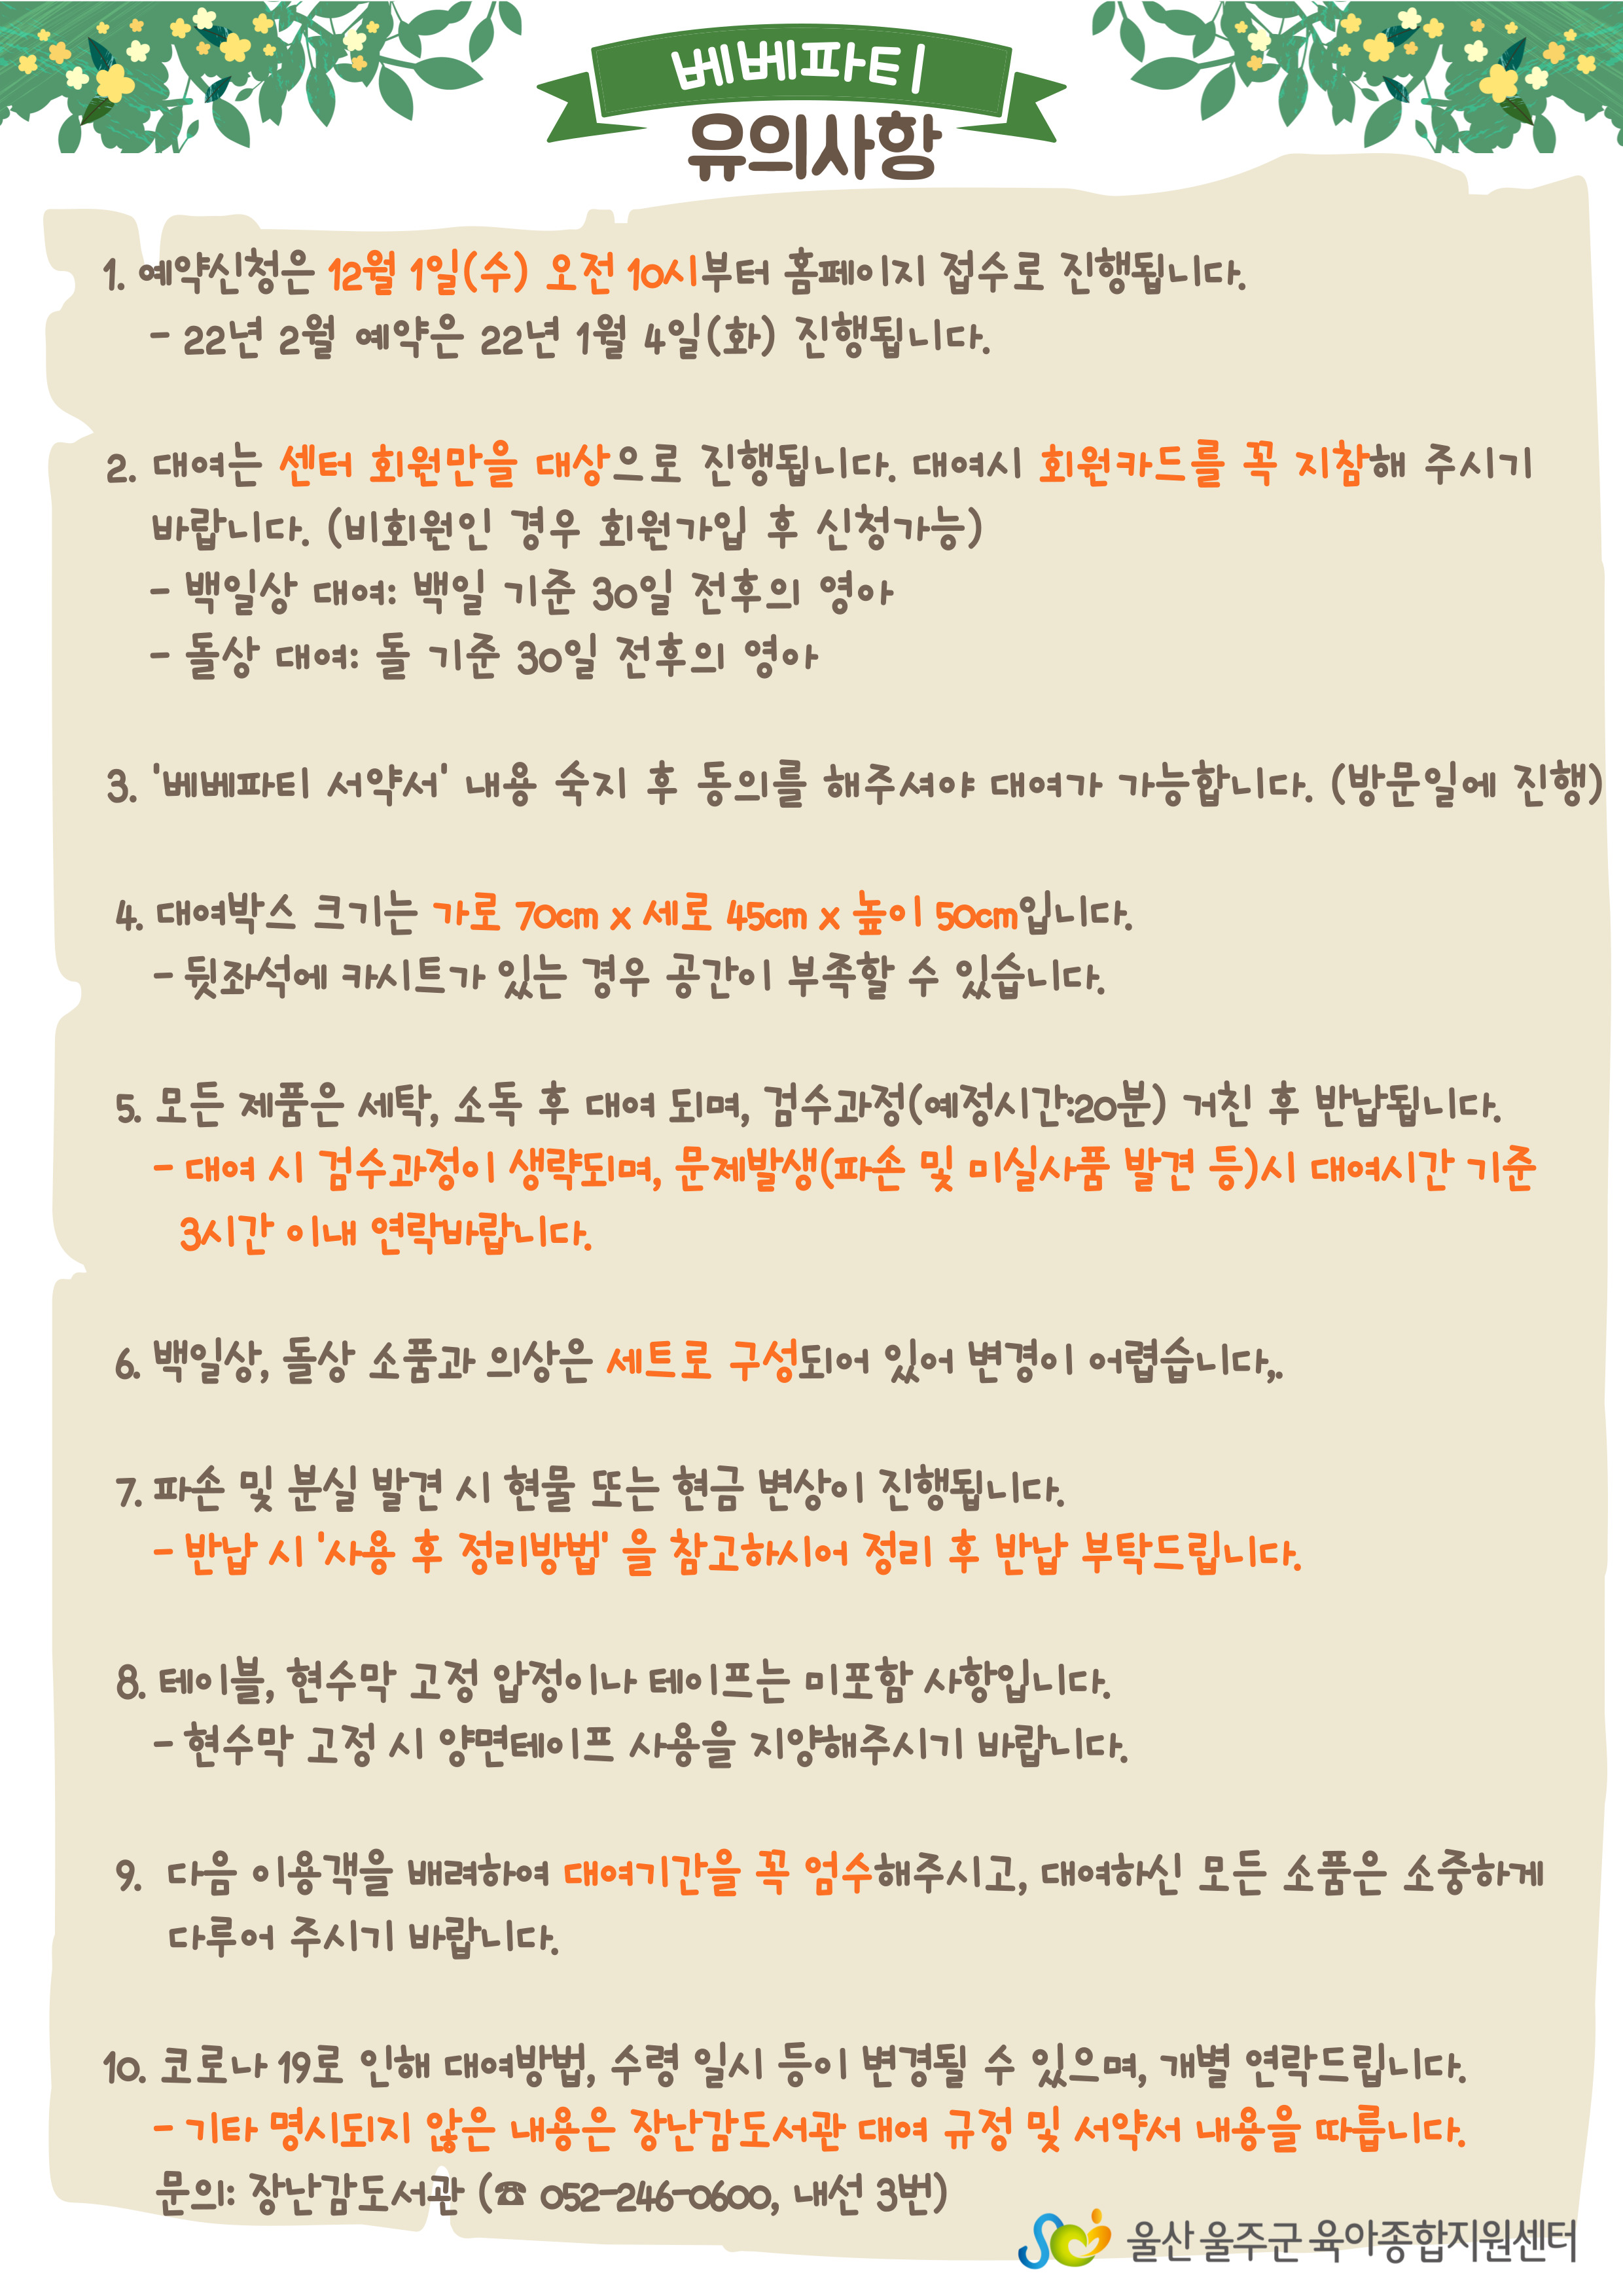 베베파티
유의사항
1. 예약신청은 12월 1일(수) 오전 10시부터 홈페이지 접수로 진행됩니다.
- 22년 2월 예약은 22년 1월 4일(화) 진행됩니다.
2. 대여는 센터 회원만을 대상으로 진행됩니다. 대여시 회원카드를 꼭 지참해 주시기
바랍니다. (비회원인 경우 회원가입 후 신청가능)
- 백일상 대여: 백일 기준 30일 전후의 영아
- 돌상 대여: 돌 기준 30일 전후의 영아
3. '베베파티 서약서' 내용 숙지 후 동의를 해주셔야 대여가 가능합니다. (방문일에 진행)
4. 대여박스 크기는 가로 70cm x 세로 45cm x 높이 50cm입니다.
- 뒷좌석에 카시트가 있는 경우 공간이 부족할 수 있습니다.
5. 모든 제품은 세탁, 소독 후 대여 되며, 검수과정(예정시간:20분) 거친 후 반납됩니다.
- 대여 시 검수과정이 생략되며, 문제발생(파손 및 미실사품 발견 등)시 대여시간 기준
3시간 이내 연락바랍니다.
6. 백일상, 돌상 소품과 의상은 세트로 구성되어 있어 변경이 어렵습니다,.
7. 파손 및 분실 발견 시 현물 또는 현금 변상이 진행됩니다.
- 반납 시 '사용 후 정리방법' 을 참고하시어 정리 후 반납 부탁드립니다.
8. 테이블, 현수막 고정 압정이나 테이프는 미포함 사항입니다.
- 현수막 고정 시 양면테이프 사용을 지양해주시기 바랍니다.
9. 다음 이용객을 배려하여 대여기간을 꼭 엄수해주시고, 대여하신 모든 소품은 소중하게
다루어 주시기 바랍니다.
10. 코로나 19로 인해 대여방법, 수령 일시 등이 변경될 수 있으며, 개별 연락드립니다.
- 기타 명시되지 않은 내용은 장난감도서관 대여 규정 및 서약서 내용을 따릅니다.
문의: 장난감도서관 (☎ 052-246-0600, 내선 3번)
울산 울주군 육아종합지원센터